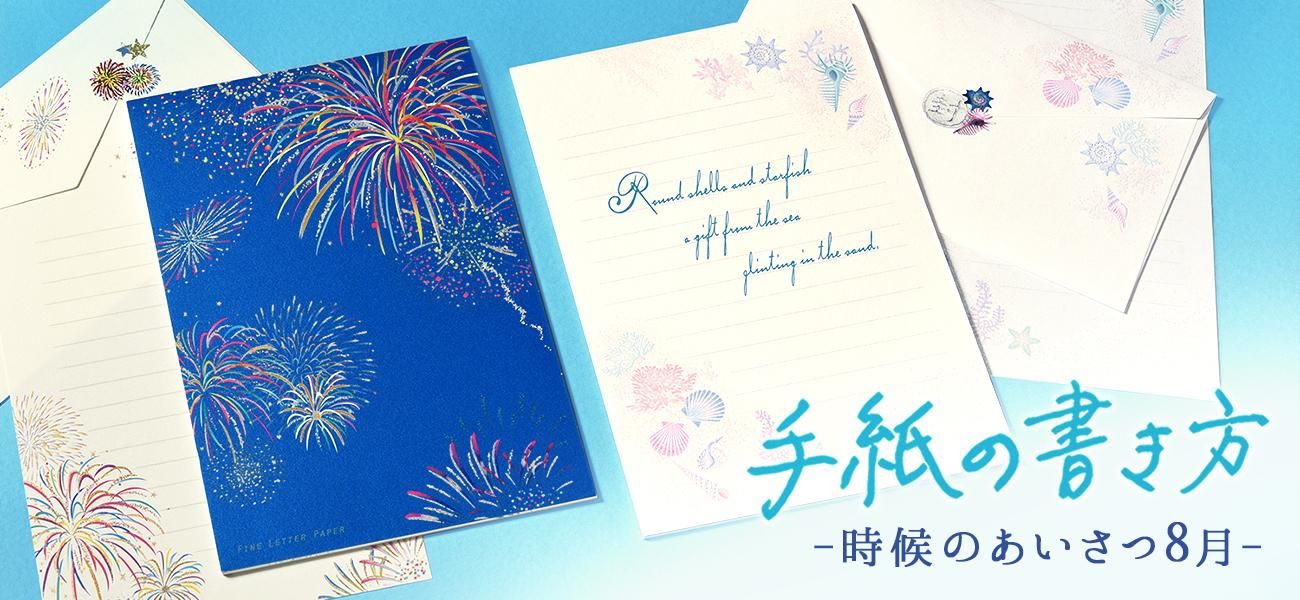 FINE LETTER PAPER
Round shells and starfish
a gift from the sea
glinting in the sand.
手紙の書き方
-時候のあいさつ8月-